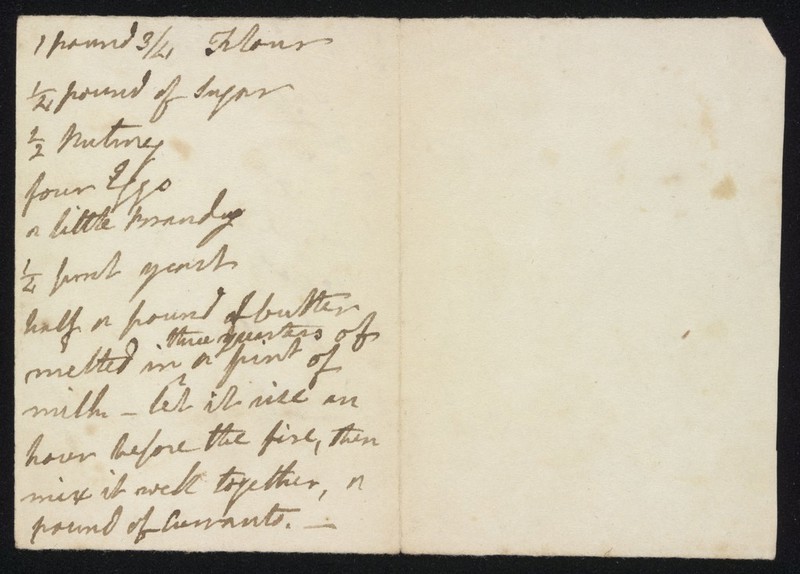 1 pound 3/4 Flour
1/4 pound of Sugar
1/2 Nutmeg
four Eggs
a little Brandy
1/4 pint yeast
half a pound of butter
three quarters of
melted in a pint of
milk – let it rise an
hour before the fire, then
mix it well together, a
pound of Currants. —